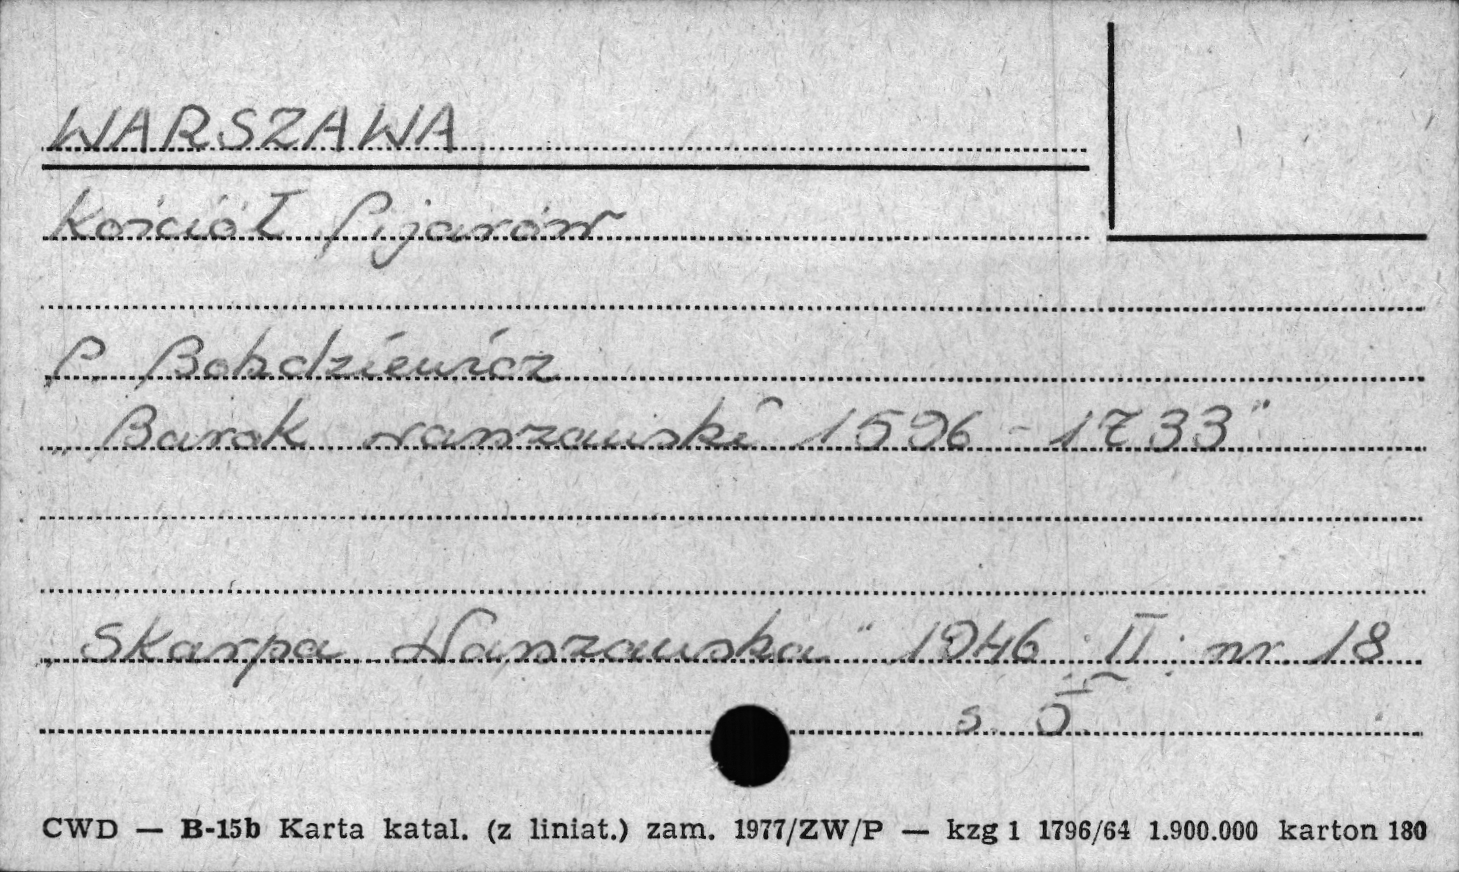 WARSZAWA
Kościół Pijarów
P. Bohdziewicz
„Barok warszawski 1596 - 1733"
„Skarpa Warszawska" 1946 II nr. 18
s. 5
CWD — B-15b Karta katal. (z liniat.) zam. 1977/ZW/P — kzg 1 1796/64 1.900.000 karton 180